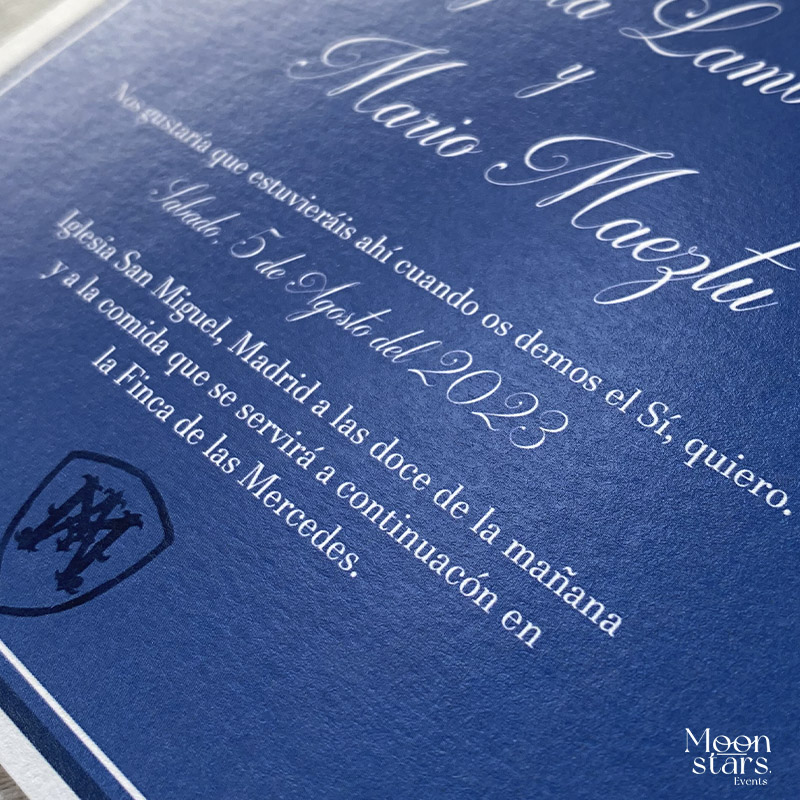 y
Mario Maeztu
Nos gustaría que estuvieráis ahí cuando os demos el Sí, quiero.
Sábado, 5 de Agosto del 2023
Iglesia San Miguel, Madrid a las doce de la mañana
y a la comida que se servirá a continuacón en
la Finca de las Mercedes.
Moon
stars
Events